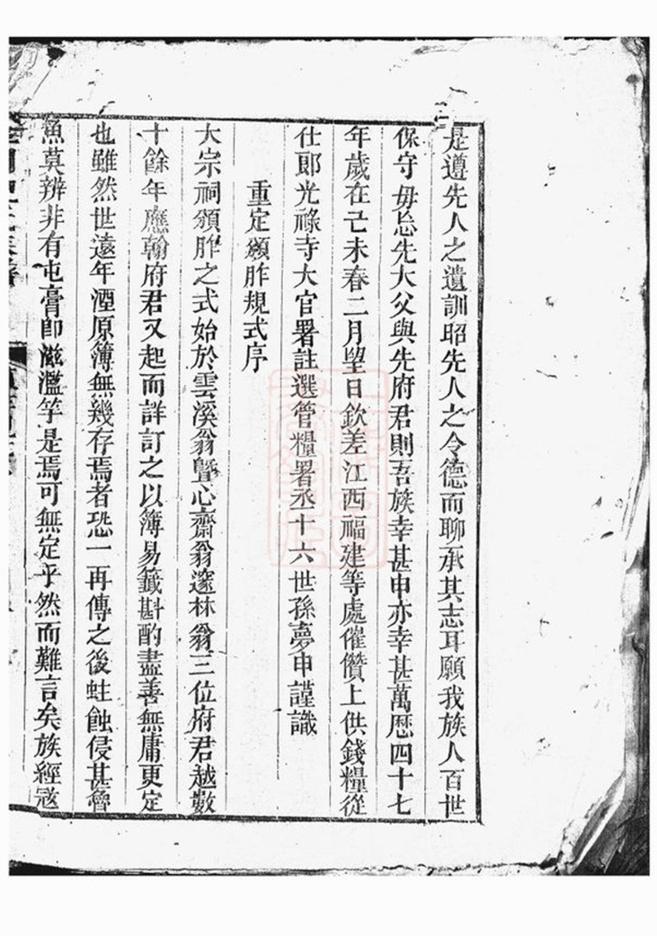 是遵先人之遺訓昭先人之令德而聊承其志耳願我族人百世
保守毋忘先大父與先府君則吾族幸甚申亦幸甚萬歷四十七
年歲在己未春二月望日欽差江西福建等處催儹上供錢糧從
仕郎光祿寺大官署註選管糧署丞十六世孫夢申謹識
重定頒胙規式序
大宗祠頒胙之式始於雲溪翁暨心齋翁邃林翁三位府君越數
十餘年應翰府君又起而詳訂之以簿易籤斟酌盡善無庸更定
也雖然世遠年湮原簿無幾存焉者恐一再傳之後蛀蝕侵甚魯
魚莫辨非有屯膏卽滋濫竽是焉可無定乎然而難言矣族經寇